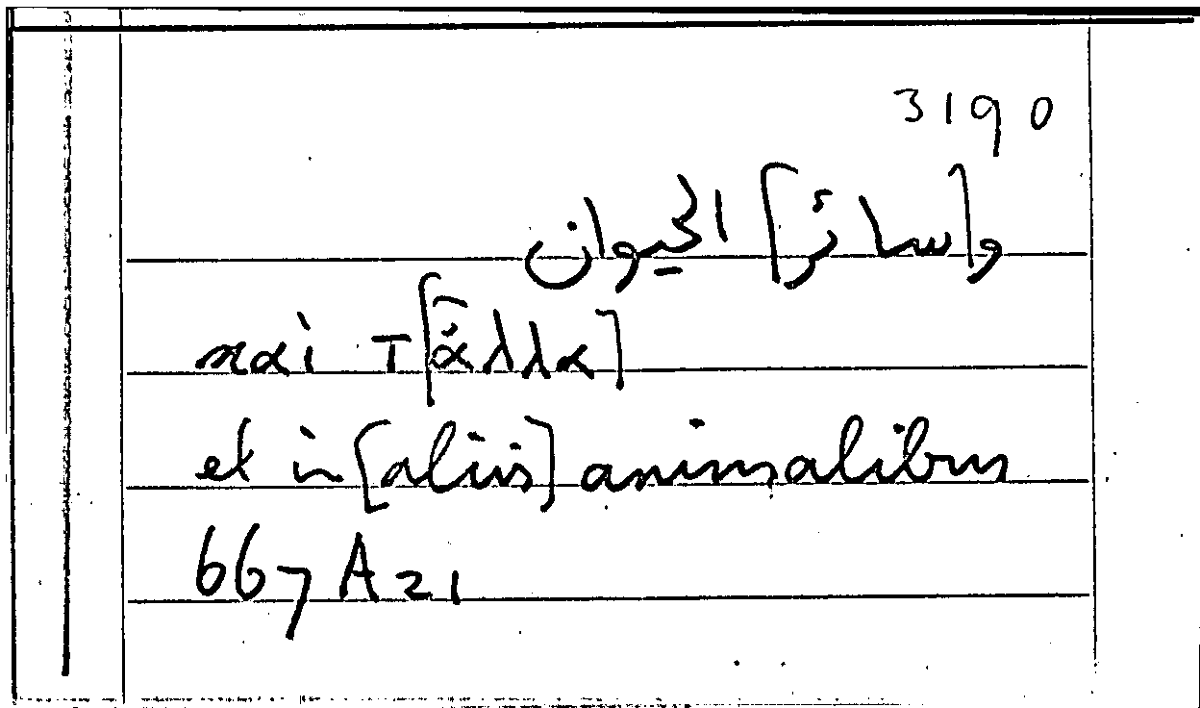 3190
و[سائر] الحيوان
καὶ τ[ἆλλα]
et in [aliis] animalibus
667 A 21